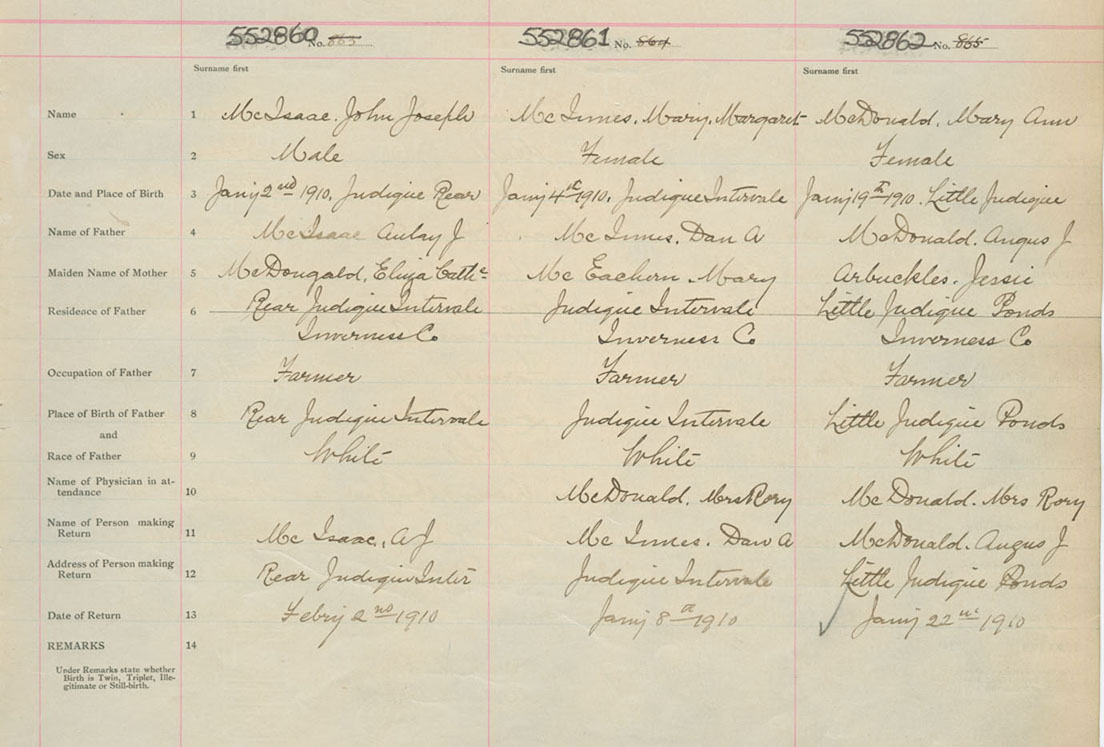 552860 No. 863 552861 No. 864 552862 No. 865
Surname first Surname first Surname first
Name 1 McIsaac, John Joseph McInnes, Mary, Margaret McDonald, Mary Ann
Sex 2 Male Female Female
Date and Place of Birth 3 Jany 2nd 1910, Judique Rear Jany 4th 1910, Judique Intervale Jany 19th 1910. Little Judique
Name of Father 4 McIsaac Aulay J McInnes, Dan A McDonald. Angus J
Maiden Name of Mother 5 McDougald, Eliza Cathe McEachern, Mary Arbuckles. Jessie
Residence of Father 6 Rear Judique Intervale Judique Intervale Little Judique Ponds
Inverness Co Inverness Co Inverness Co
Occupation of Father 7 Farmer Farmer Farmer
Place of Birth of Father 8 Rear Judique Intervale Judique Intervale Little Judique Ponds
and
Race of Father 9 White White White
Name of Physician in at-
tendance 10 McDonald. Mrs Rory McDonald. Mrs Rory
Name of Person making
Return 11 McIsaac, A J McInnes. Dan A McDonald. Angus J
Address of Person making
Return 12 Rear Judique Inter Judique Intervale Little Judique Ponds
Date of Return 13 Febry 2nd 1910 Jany 8th 1910 Jany 22nd 1910
REMARKS 14
Under Remarks state whether
Birth is Twin, Triplet, Ille-
gitimate or Still-birth.